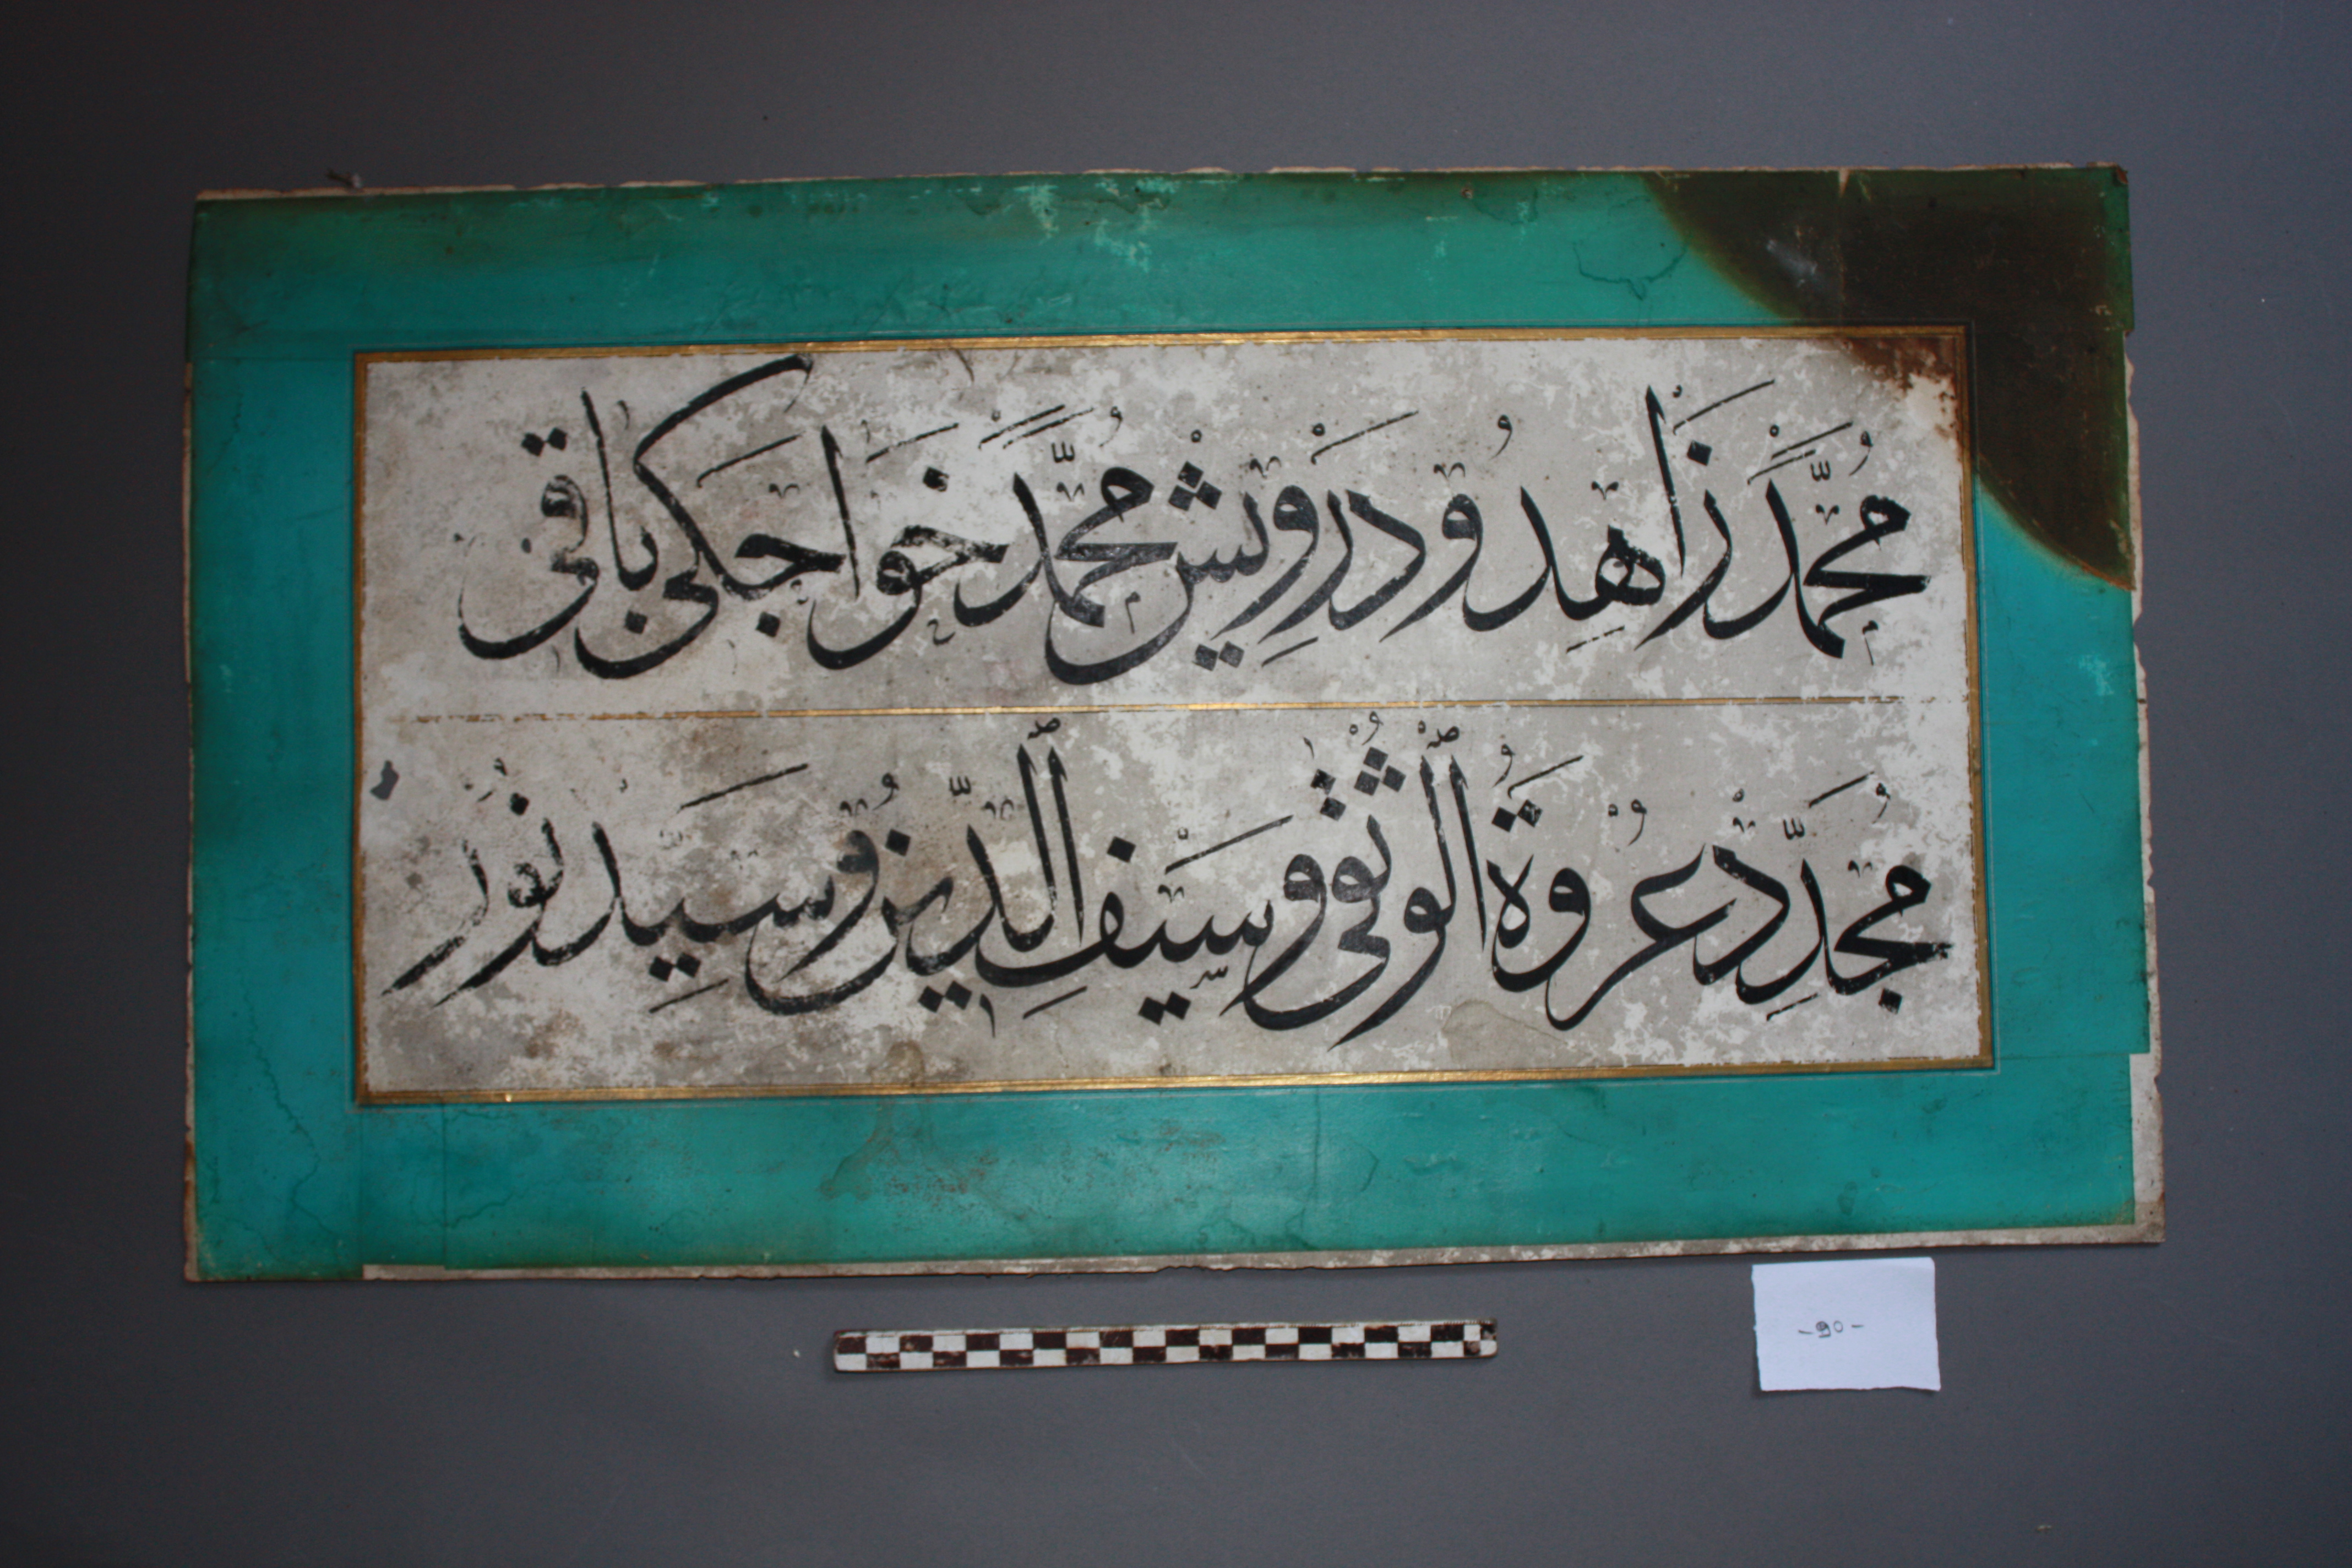 مُحَمَّدْ زَاهِدُ و دَرْوِيشْ مُحَمَّدْ خَواجَكِی بَاقِی
مُجَدِّدْ عُرْوَةُ ٱلْوُثْقٰی و سَيْفِ ٱلدِّينُ و سَيِّدْ نُورْ
-90-